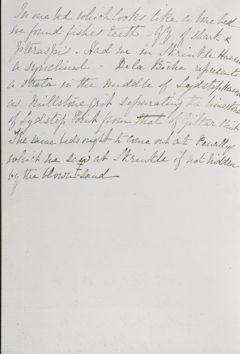 In one bed which looks like a bone bed
we found fishes teeth - of Shark &
Pteraspis. And we in Skrinkle Haven
a synclinal - De la Beche represents
a strata in the middle of Lydstep Haven
as Millstone grit separating the limestone
of Lydstep Point from that of Giltar Point
The same beds ought to come out at Penally
which we saw at Skrinkle if not hidden
by the blown sand